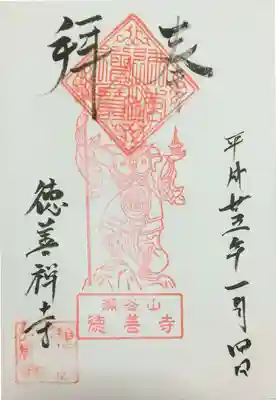 奉拝
平成廿五年一月四日
瀬谷山
徳善寺
徳善禅寺